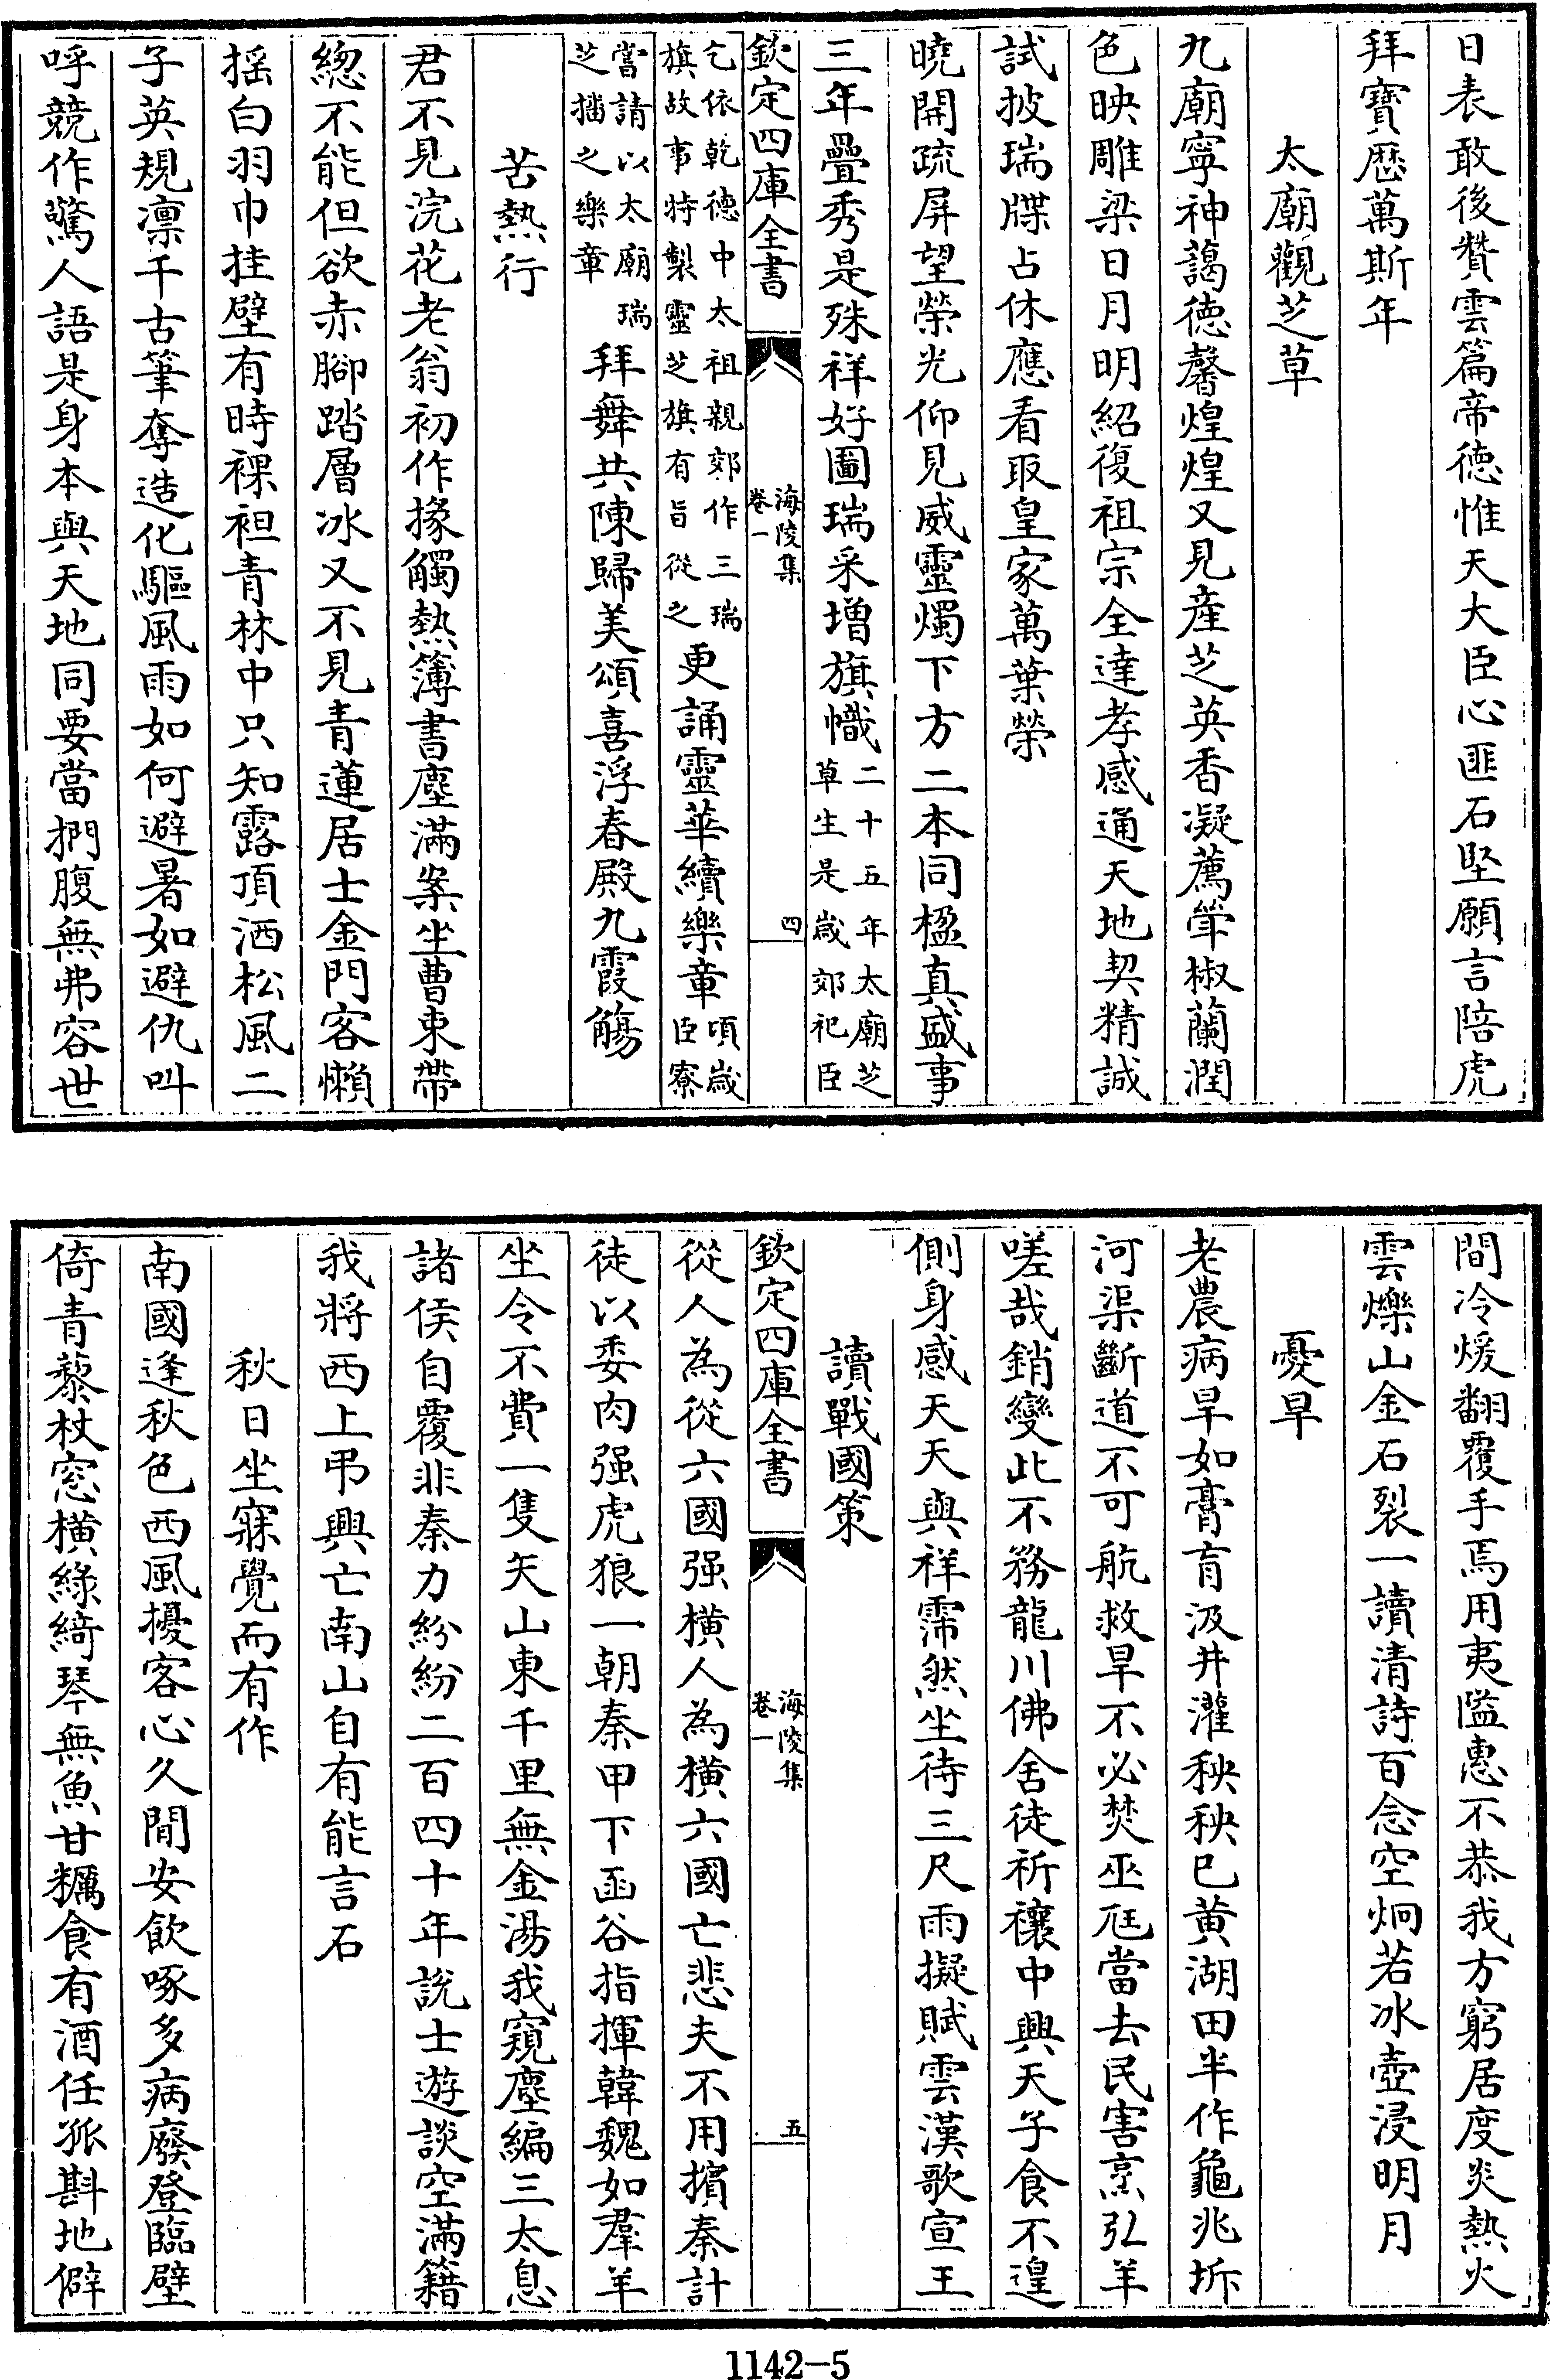 日表敢後賛雲篇帝徳惟天大臣心匪石堅願言陪虎
拜寶厯萬斯年
太廟觀芝草
九廟寧神藹徳馨煌煌又見産芝英香凝薦苹椒蘭潤
色映雕梁日月明紹復祖宗全達孝感通天地契精誠
試披瑞牒占休應看取皇家萬葉榮
曉開疏屏望榮光仰見威靈燭下方二本同楹真盛事
三年疊秀是殊祥好圖瑞采増旗幟二十五年太廟芝
草生是歳郊祀臣
欽定四庫全書
海陵集
卷一
四
乞依乾德中太祖親郊作三瑞
旗故事特製靈芝旗有旨從之更誦靈華續樂章頃歳
臣寮
當請以太廟瑞
芝播之樂章拜舞共陳歸美頌喜浮春殿九霞觴
苦熱行
君不見浣花老翁初作掾觸熱簿書塵滿案坐曹束帶
總不能但欲赤腳踏層冰又不見青蓮居士金門客懶
揺白羽巾挂壁有時裸袒青林中只知露頂洒松風二
子英規凛千古筆奪造化驅風雨如何避暑如避仇叫
呼競作驚人語是身本與天地同要當捫腹無弗容世
間冷煖翻覆手焉用夷隘惠不恭我方窮居度炎熱火
雲爍山金石裂一讀清詩百念空炯若冰壺浸明月
憂旱
老農病旱如膏肓汲井灌秧秧已黄湖田半作龜兆坼
河渠斷道不可航救旱不必焚巫尫當去民害烹弘羊
嗟哉銷變此不務龍川佛舍徒祈禳中興天子食不遑
側身感天天與祥霈然坐待三尺雨擬賦雲漢歌宣王
讀戰國策
欽定四庫全書
海陵集
卷一
五
從人為從六國强橫人為橫六國亡悲夫不用擯秦計
徒以委肉强虎狼一朝秦甲下函谷指揮韓魏如羣羊
坐令不費一隻矢山東千里無金湯我窺塵編三太息
諸侯自覆非秦力紛紛二百四十年説士遊談空滿籍
我將西上弔興亡南山自有能言石
秋日坐寐覺而有作
南國逢秋色西風擾客心久閒安飲啄多病廢登臨壁
倚青藜杖窓橫綠綺琴無魚甘糲食有酒任孤斟地僻
1142-5